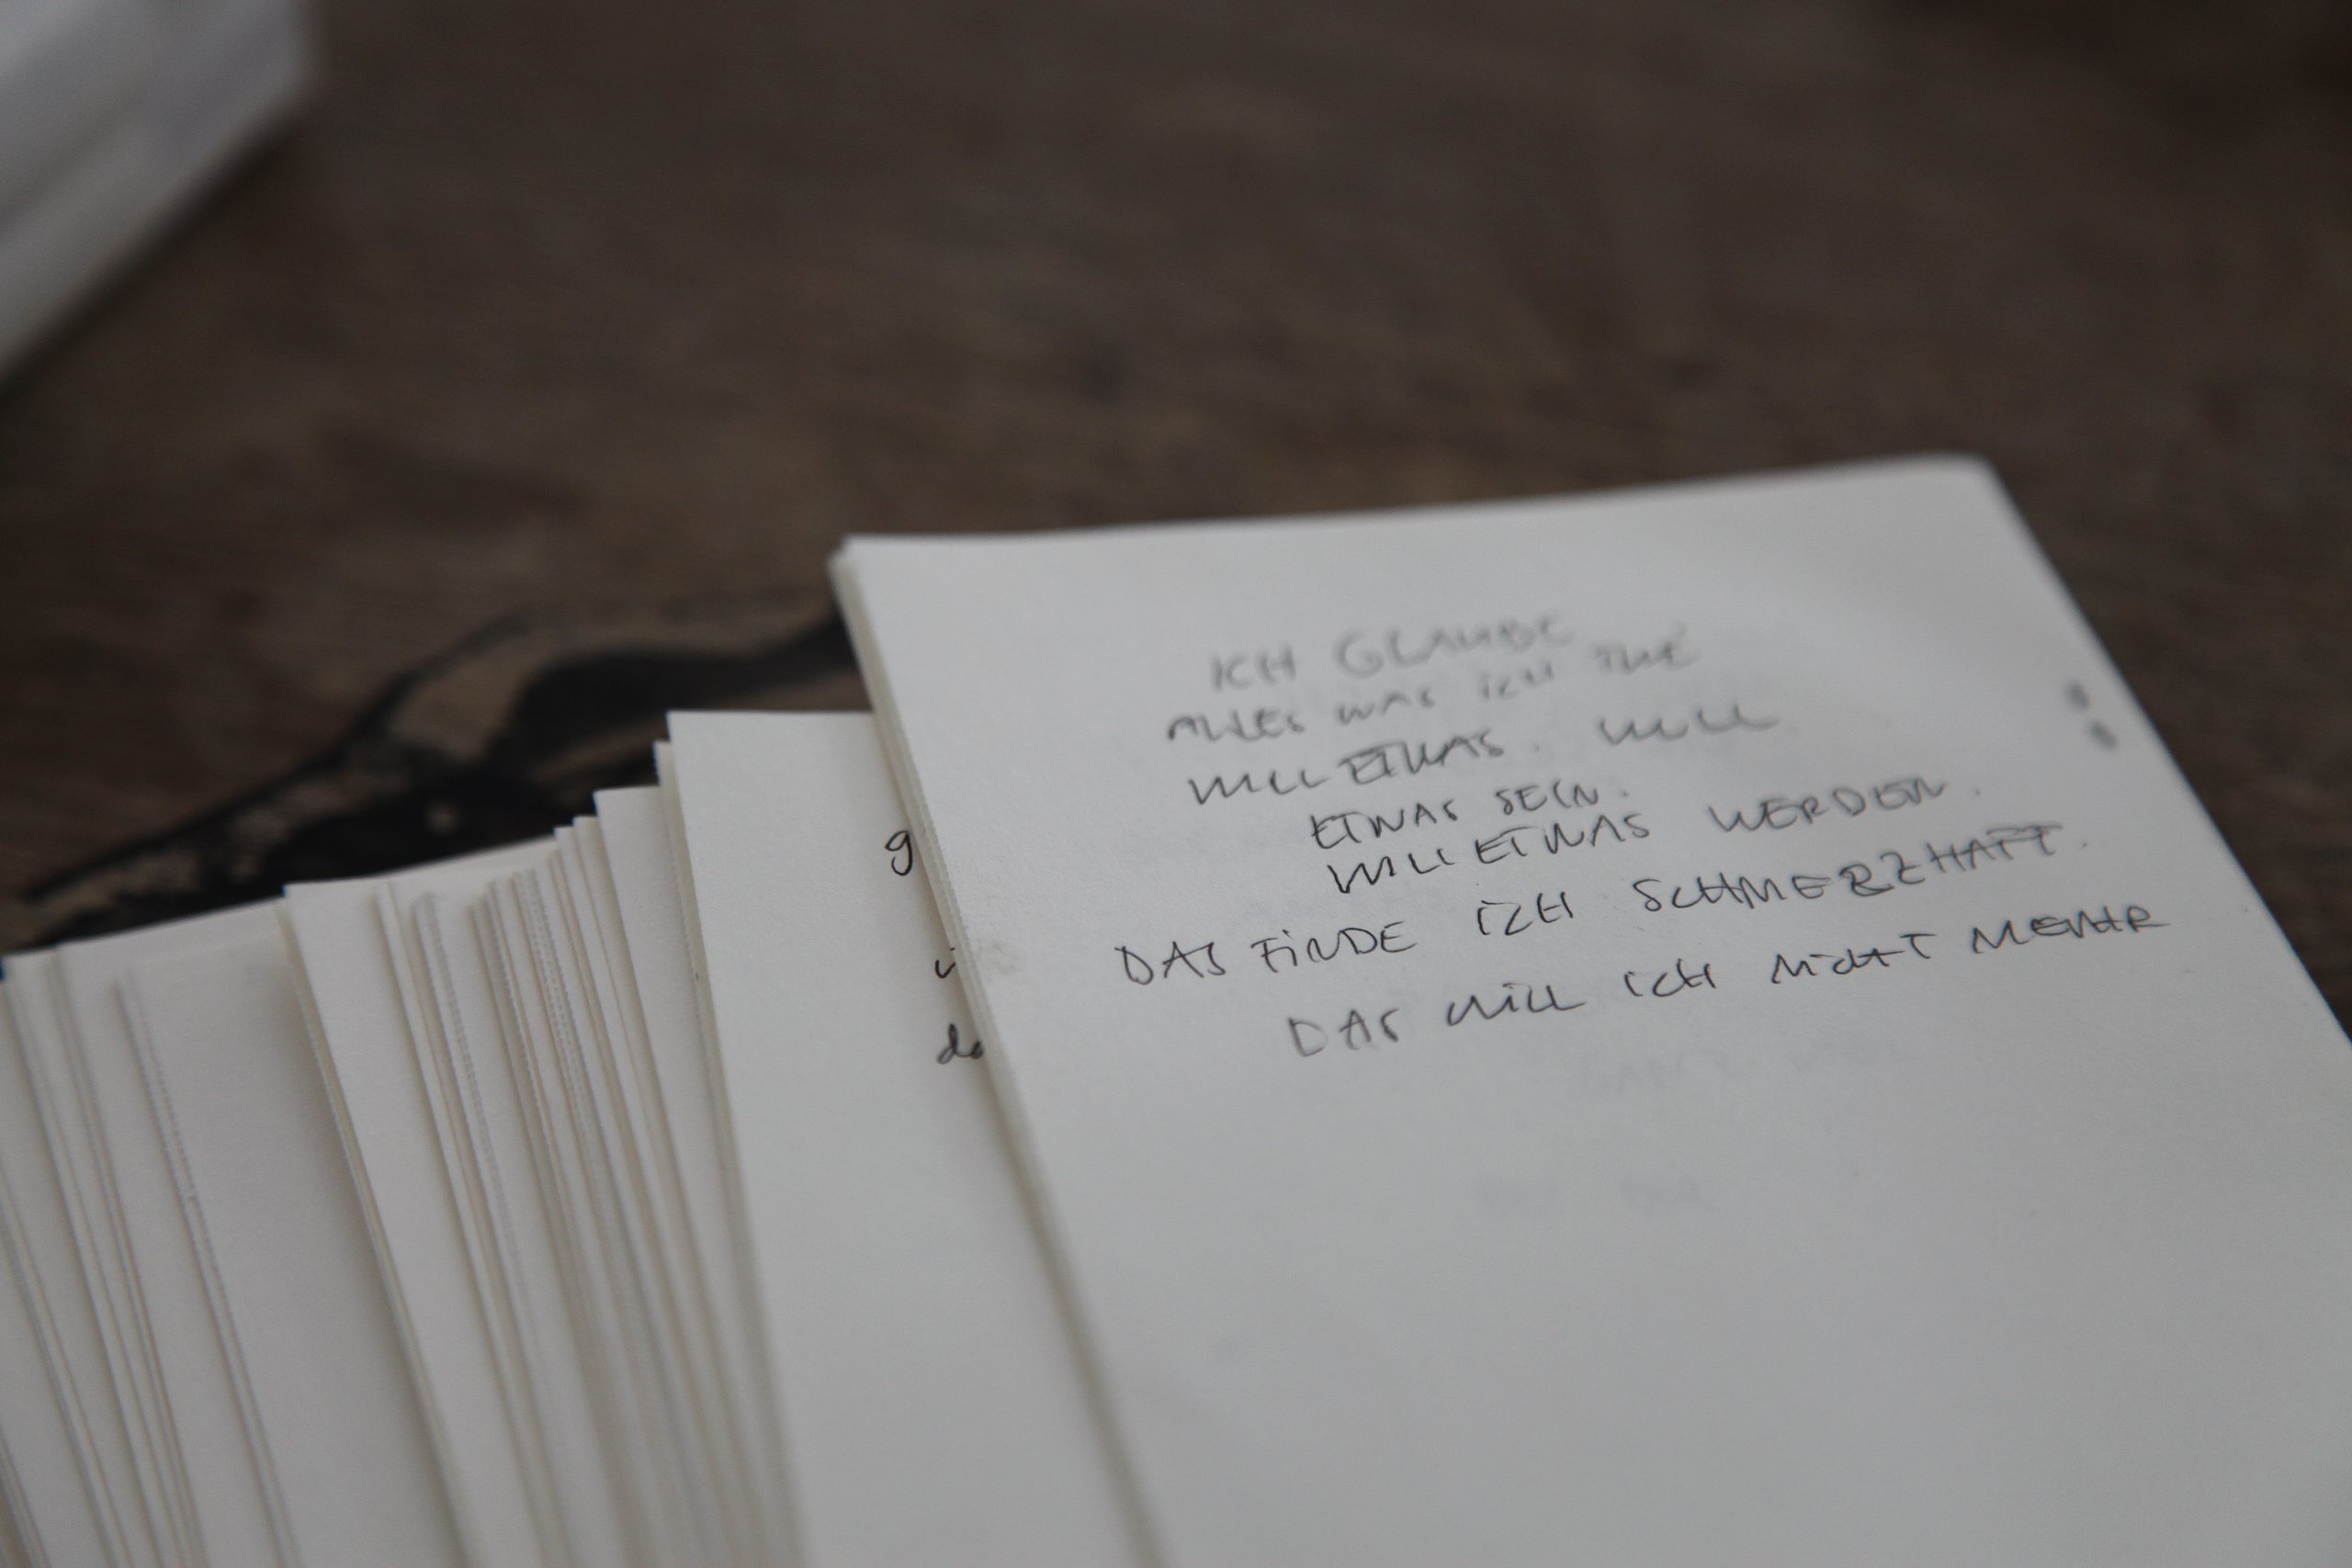 ICH GLAUBE
ALLES WAS ICH TUE
WILL ETWAS. WILL
ETWAS SEIN.
WILL ETWAS WERDEN.
DAS FINDE ICH SCHMERZHAFT.
DAS WILL ICH NICHT MEHR
g
do